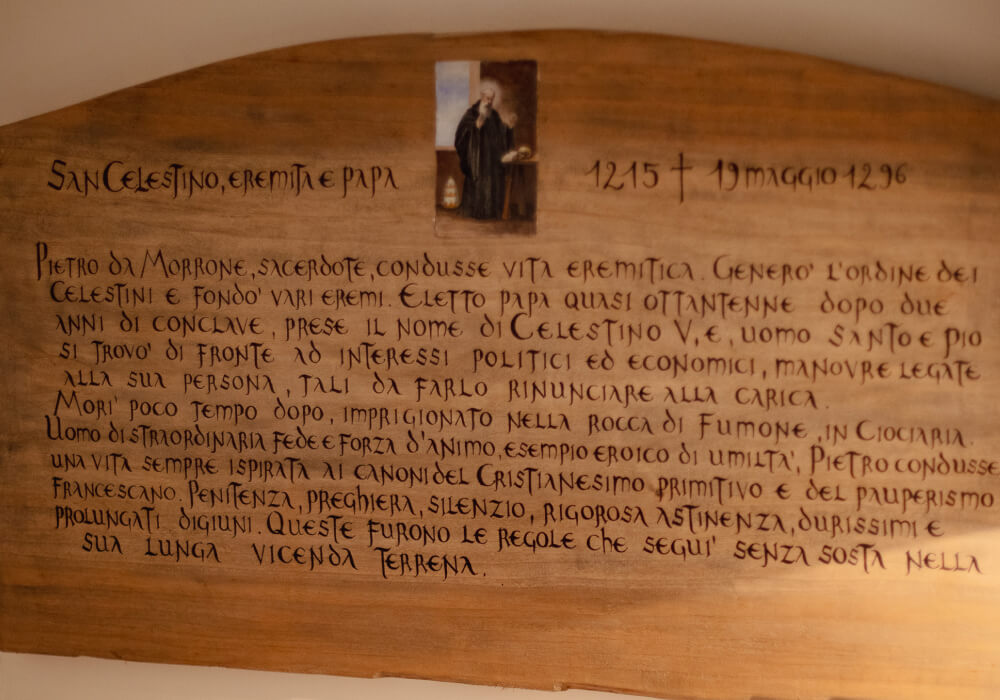 San Celestino, eremita e papa
1215 † 19 maggio 1296
Pietro da Morrone, sacerdote, condusse vita eremitica. Genero' l'ordine dei
Celestini e fondo' vari eremi. Eletto papa quasi ottantenne dopo due
anni di conclave, prese il nome di Celestino V, e, uomo santo e pio
si trovo' di fronte ad interessi politici ed economici, manovre legate
alla sua persona, tali da farlo rinunciare alla carica.
Mori' poco tempo dopo, imprigionato nella rocca di Fumone, in Ciociaria.
Uomo di straordinaria fede e forza d'animo, esempio eroico di umilta', Pietro condusse
una vita sempre ispirata ai canoni del Cristianesimo primitivo e del pauperismo
francescano. Penitenza, preghiera, silenzio, rigorosa astinenza, durissimi e
prolungati digiuni. Queste furono le regole che segui' senza sosta nella
sua lunga vicenda terrena.